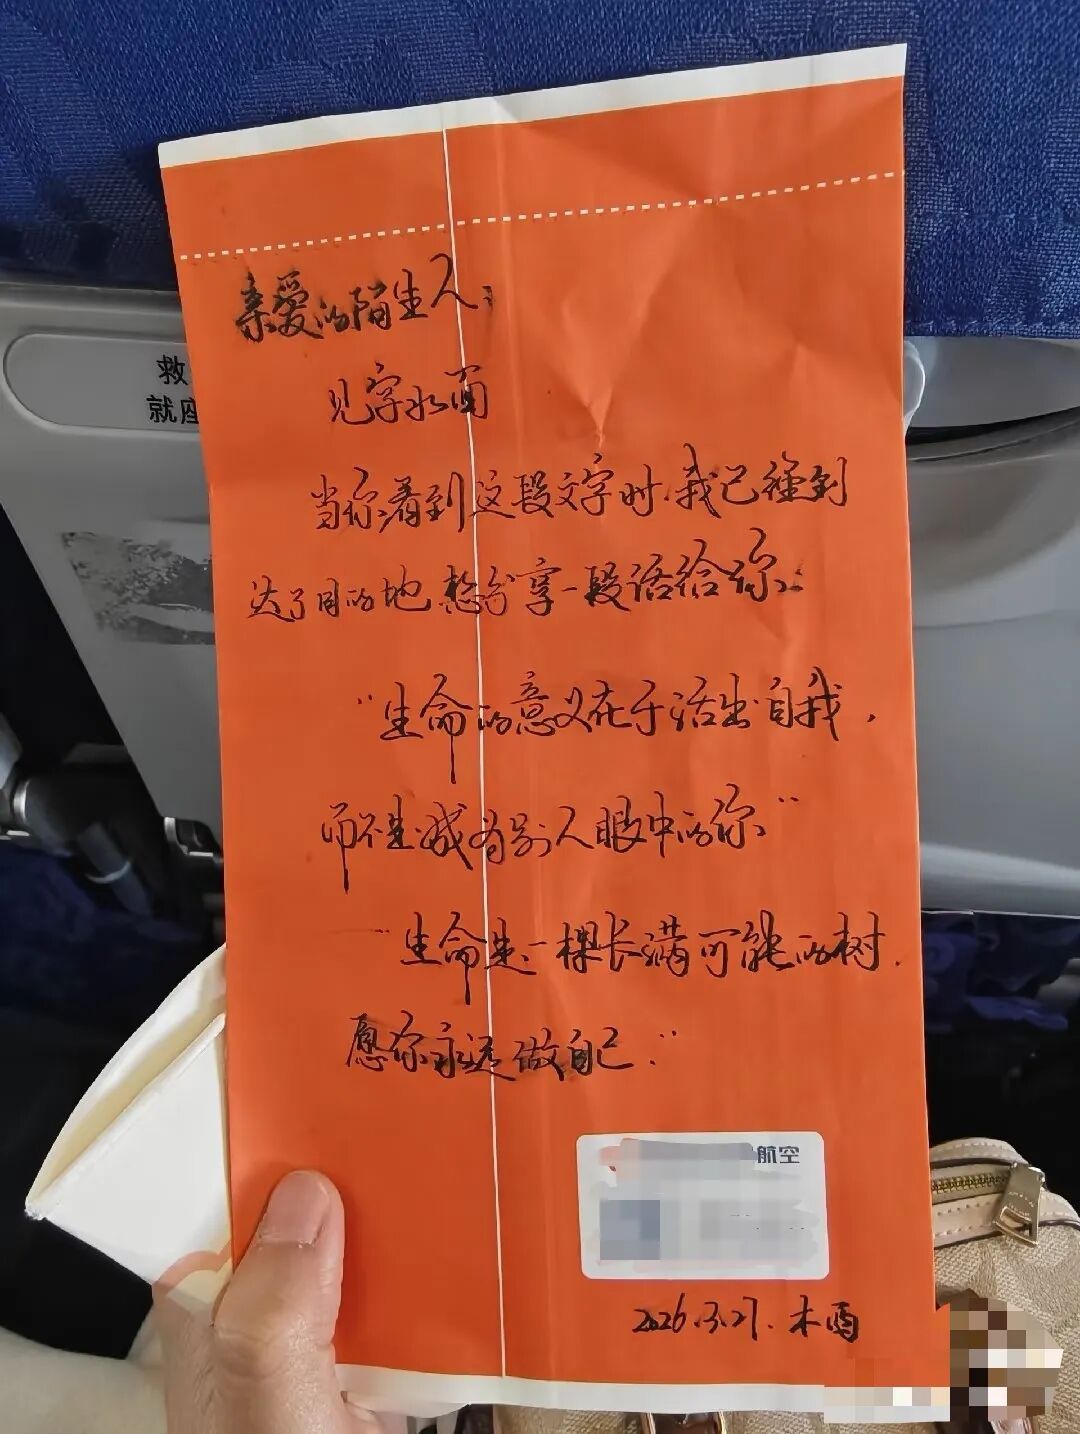 亲爱的陌生人：
见字如面
当你看到这段文字时,我已经到
达了目的地,想分享一段话给你:
“生命的意义在于活出自我,
而不是成为别人眼中的你”
“生命是一棵长满可能的树.
愿你永远做自己.”
航空
2026.3.27. 木酉
救
就座